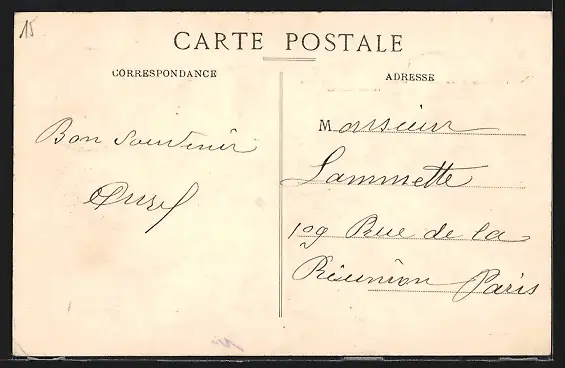 15
CARTE POSTALE
CORRESPONDANCE
ADRESSE
Bon Souvenir
Monsieur
Lammette
109 Rue de la
Réunion Paris